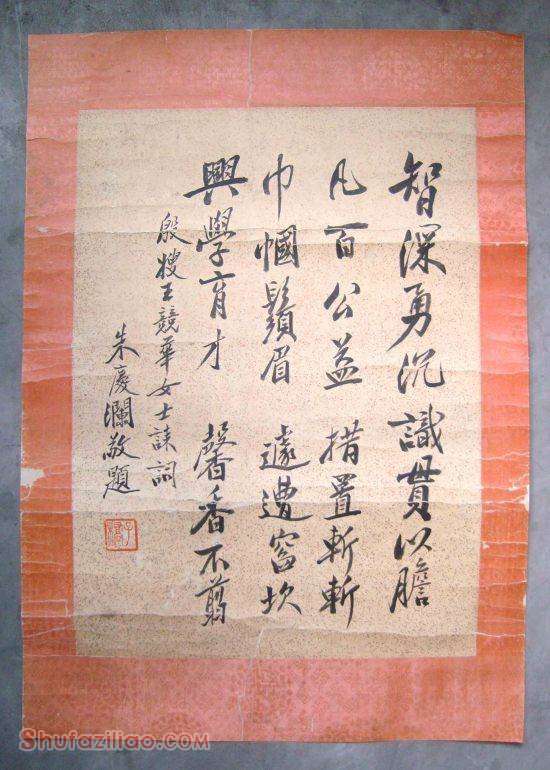 智深勇沉識貫以膽
凡百公益措置斬斬
巾幗鬚眉遽遭窞坎
興學育才馨香不翦
殷嫂王競華女士誄詞
朱慶瀾敬題
子橋
Shufaziliao.com